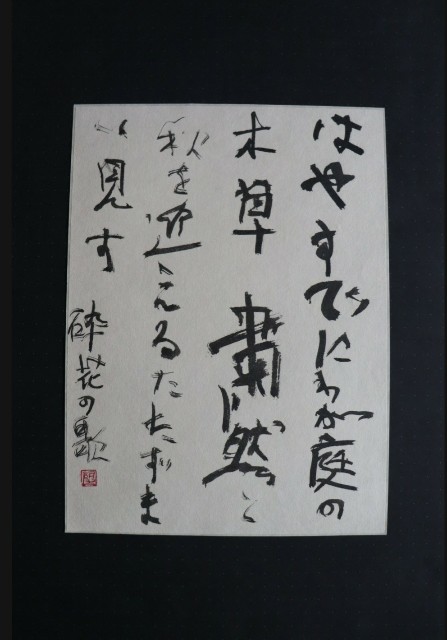 はやすでにわが庭の
木草肅然と
秋を迎えるたたずま
い見す
砕花の歌